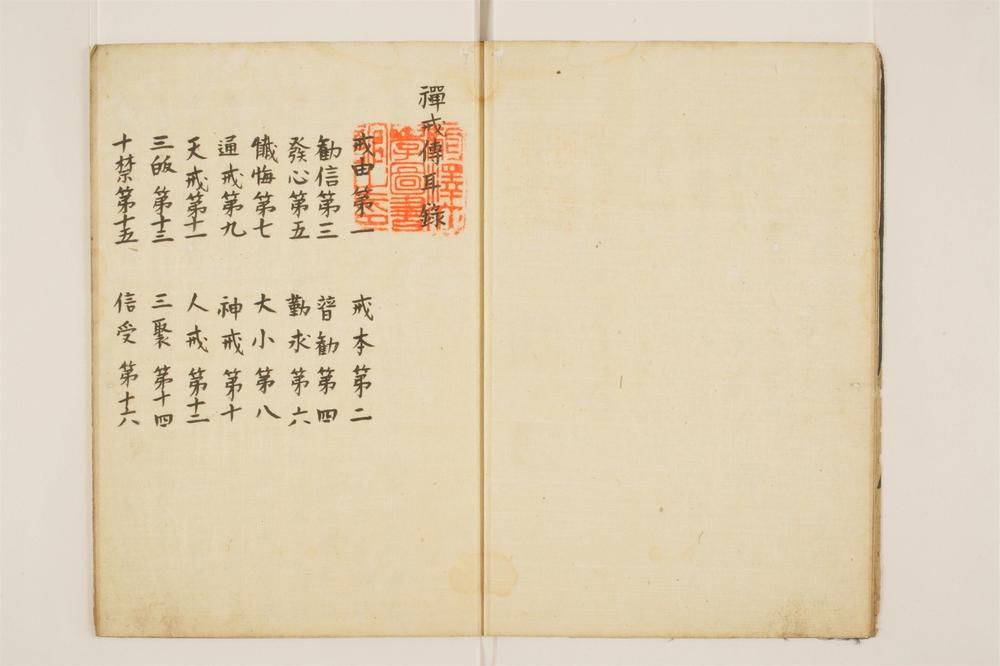 禪戒傳耳錄
戒由第一 戒本第二
勸信第三 普勸第四
發心第五 勤求第六
懺悔第七 大小第八
通戒第九 神戒第十
天戒第十一 人戒第十二
三皈第十三 三聚第十四
十禁第十五 信受第十六